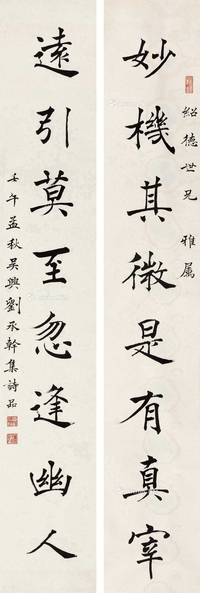 紹德世兄 雅属
妙機其微是有真宰
遠引莫至忽逢幽人
壬午孟秋吴興劉承幹集詩品